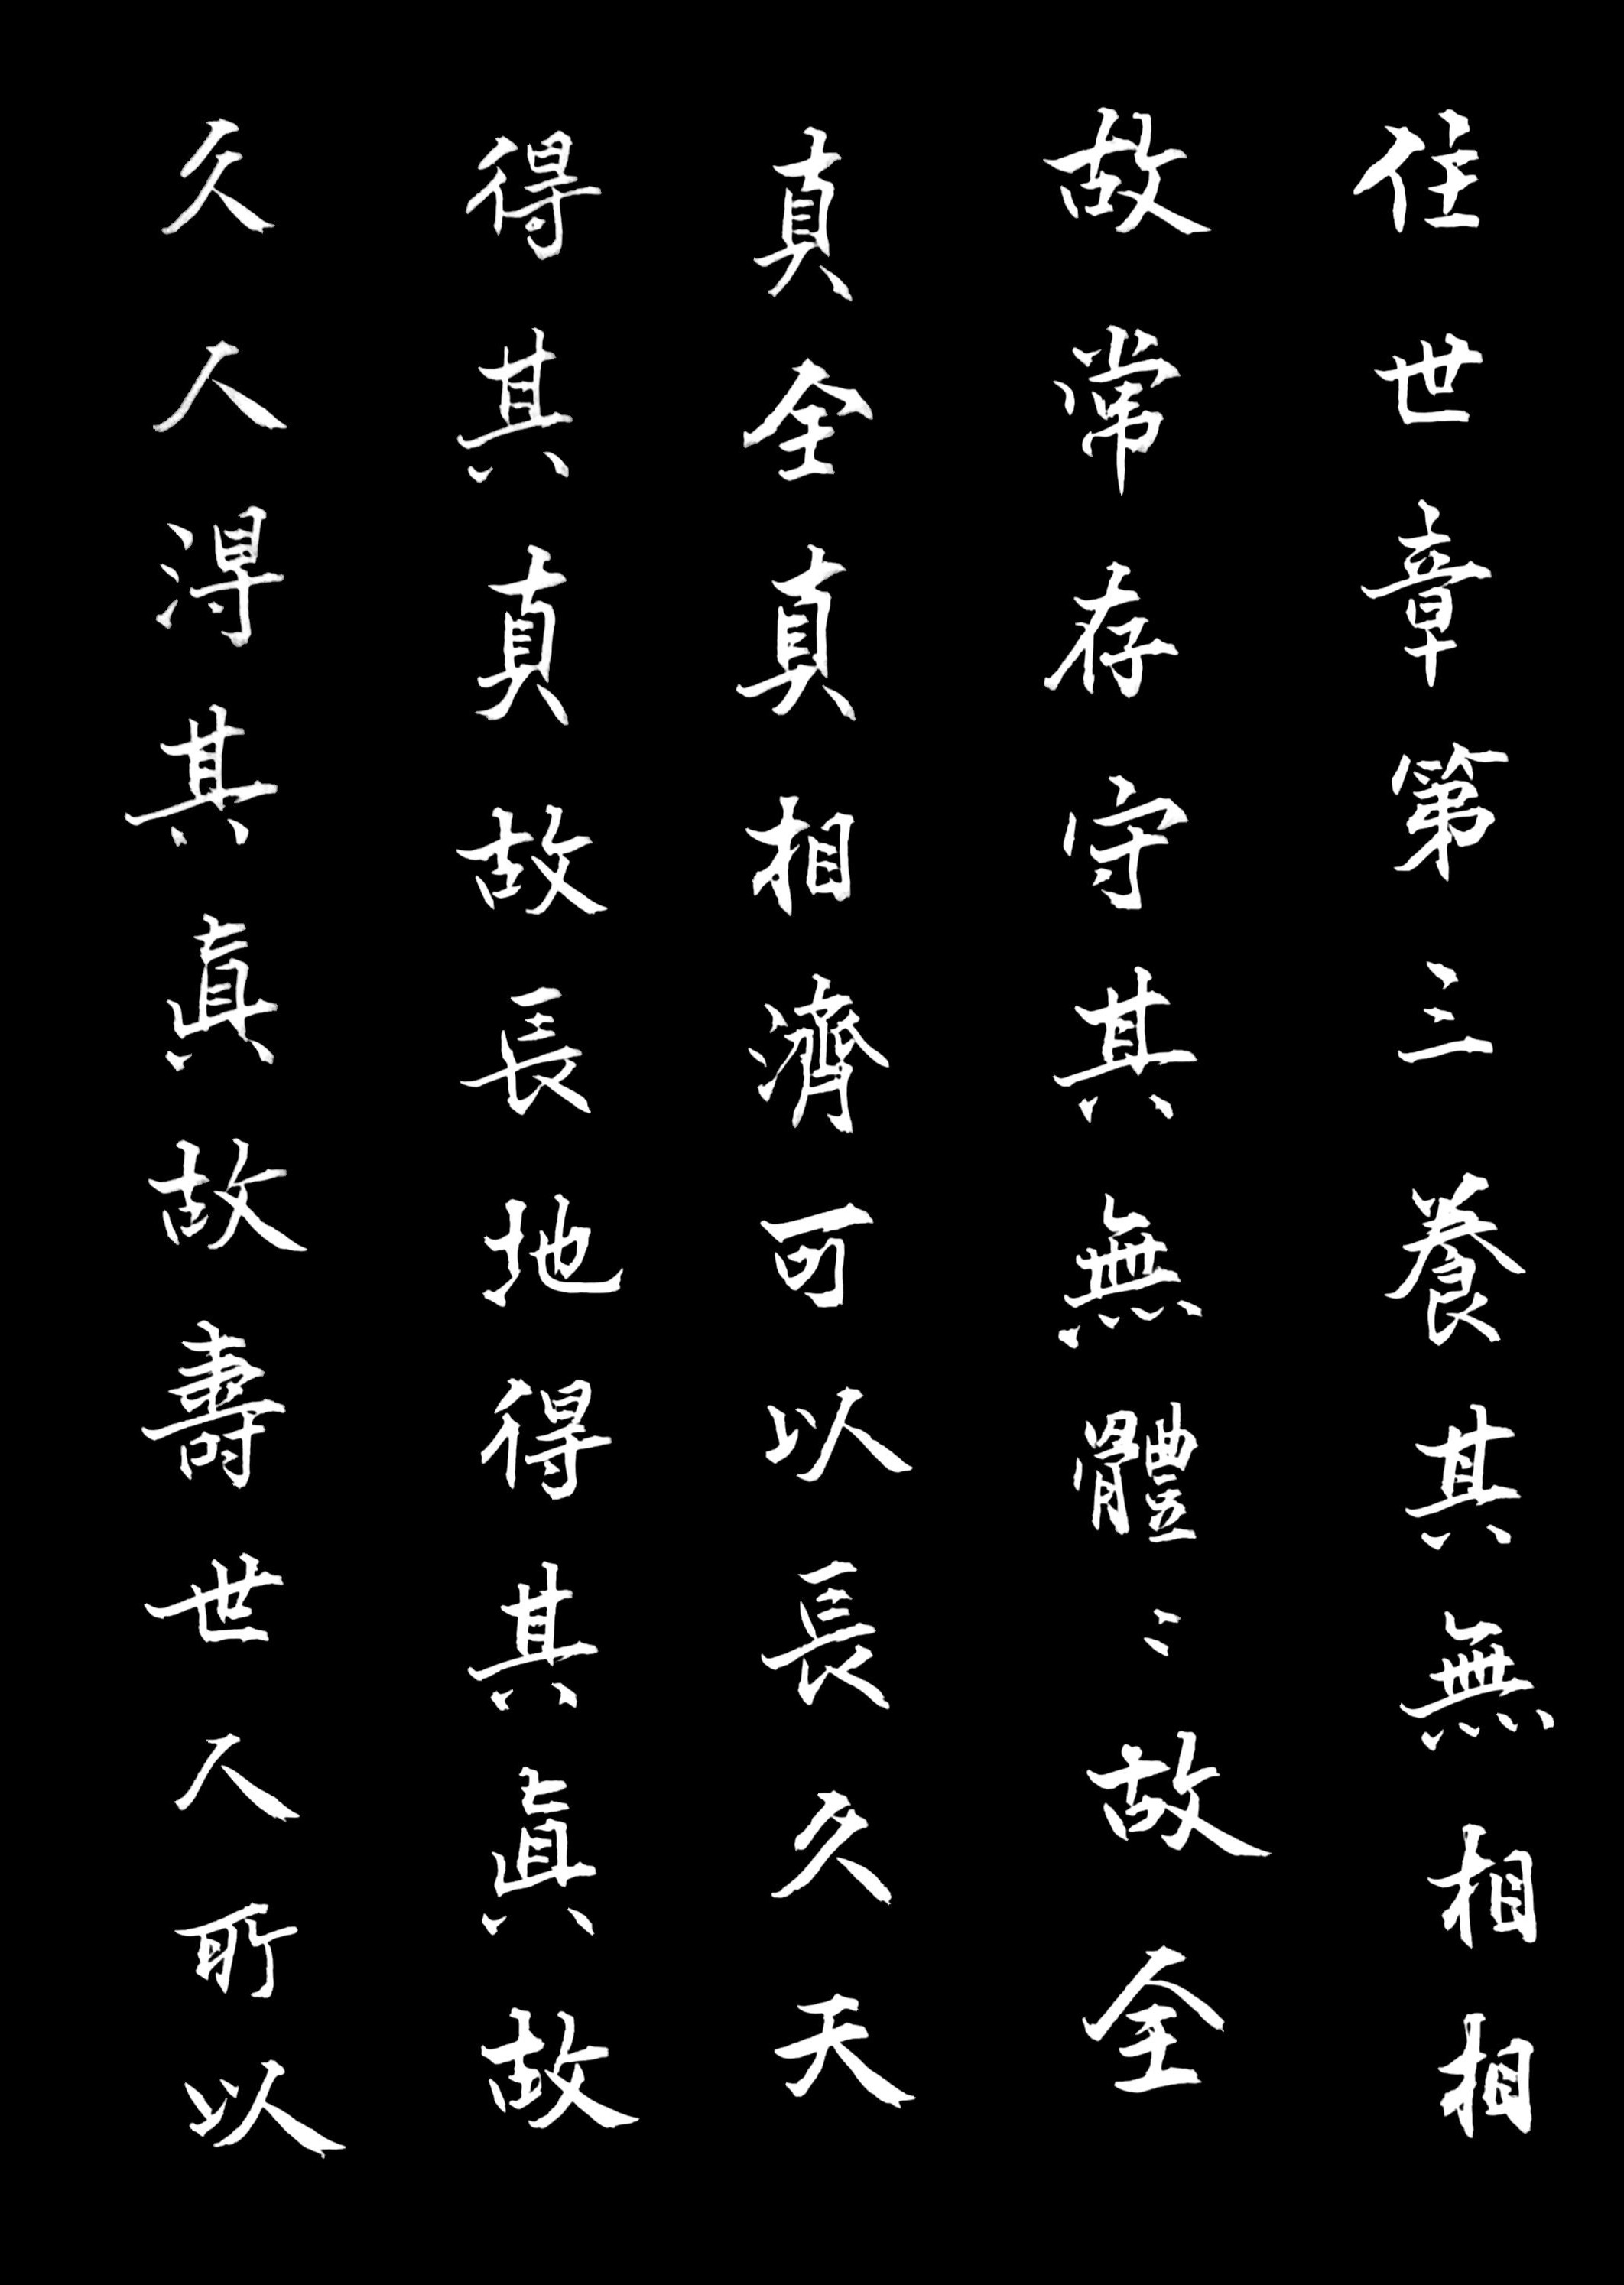 住世章第三養其無相相
故常存守其無體〻故全
真全真相濟可以長久天
得其真故長地得其眞故
久人淂其眞故壽世人所以